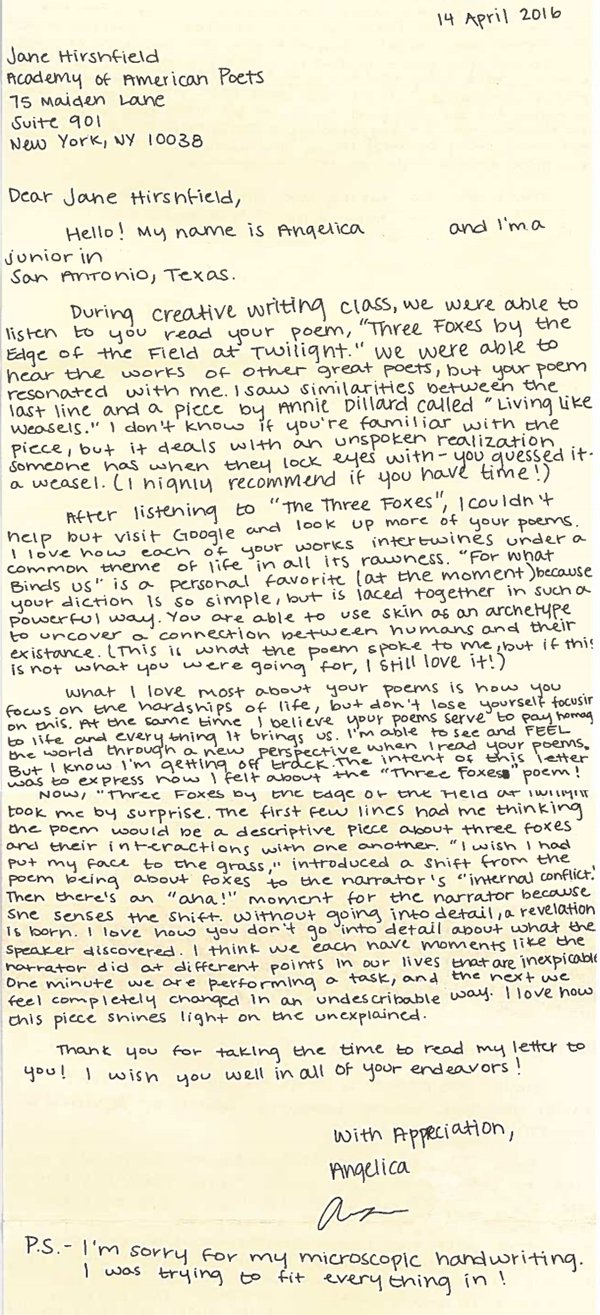 14 April 2016
Jane Hirshfield
Academy of American Poets
75 Maiden Lane
Suite 901
New York, NY 10038
Dear Jane Hirshfield,
Hello! My name is Angelica and I'm a
junior in
San Antonio, Texas.
During creative writing class, we were able to
listen to you read your poem, "Three Foxes by the
Edge of the Field at Twilight." We were able to
hear the works of other great poets, but your poem
resonated with me. I saw similarities between the
last line and a piece by Annie Dillard called "Living like
weasels." I don't know if you're familiar with the
piece, but it deals with an unspoken realization
someone has when they lock eyes with - you guessed it -
a weasel. (I highly recommend if you have time!)
After listening to "The Three Foxes", I couldn't
help but visit Google and look up more of your poems.
I love how each of your works intertwines under a
common theme of life in all its rawness. "For what
Binds us" is a personal favorite (at the moment) because
your diction is so simple, but is laced together in such a
powerful way. You are able to use skin as an archetype
to uncover a connection between humans and their
existance. (This is what the poem spoke to me, but if this
is not what you were going for, I still love it!)
What I love most about your poems is how you
focus on the hardships of life, but don't lose yourself focusin
on this. At the same time I believe your poems serve to pay homag
to life and everything it brings us. I'm able to see and FEEL
the world through a new perspective when I read your poems.
But I know I'm getting off track. The intent of this letter
was to express how I felt about the "Three Foxes" poem!
Now, "Three Foxes by the Edge of the Field at Twilight
took me by surprise. The first few lines had me thinking
the poem would be a descriptive piece about three foxes
and their interactions with one another. "I wish I had
put my face to the grass," introduced a shift from the
poem being about foxes to the narrator's "internal conflict."
Then there's an "aha!" moment for the narrator because
she senses the shift. Without going into detail, a revelation
is born. I love how you don't go into detail about what the
speaker discovered. I think we each have moments like the
narrator did at different points in our lives that are inexpicable
One minute we are performing a task, and the next we
feel completely changed in an undescribable way. I love how
this piece shines light on the unexplained.
Thank you for taking the time to read my letter to
you! I wish you well in all of your endeavors!
With Appreciation,
Angelica
P.S. - I'm sorry for my microscopic handwriting.
I was trying to fit everything in!